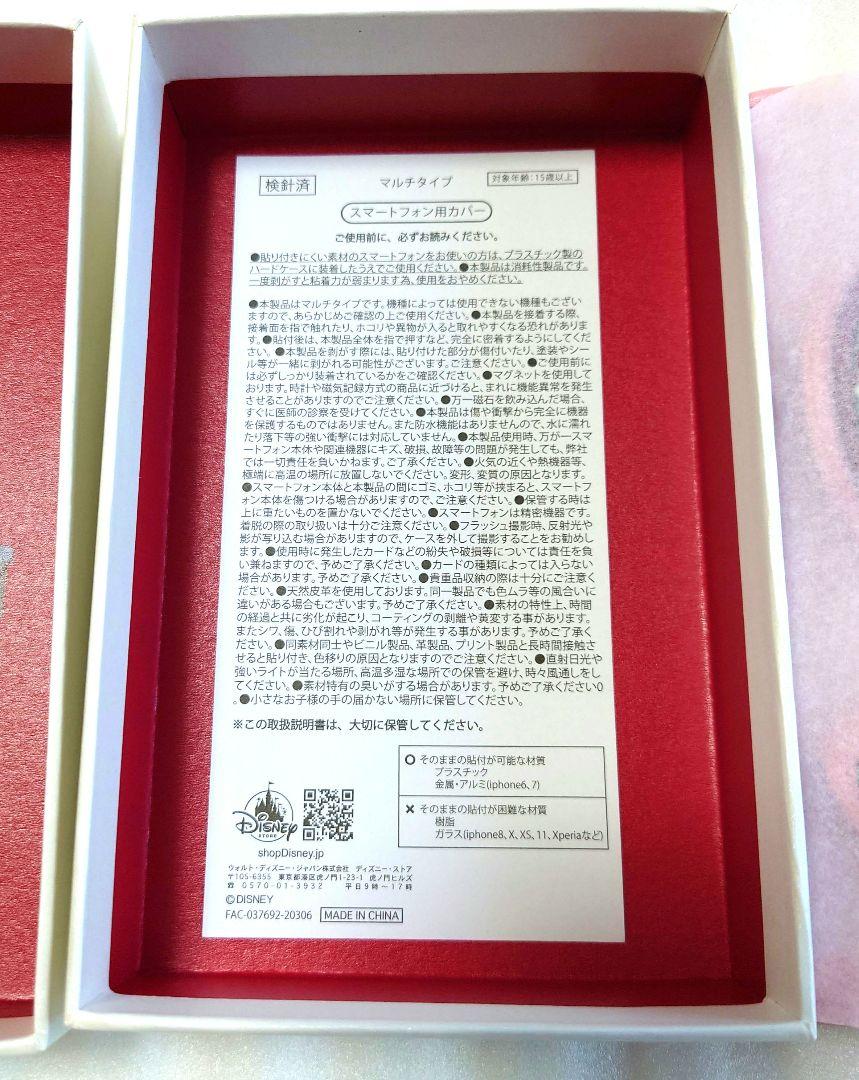 検針済
マルチタイプ
対象年齢:15歳以上
スマートフォン用カバー
ご使用前に、必ずお読みください。
●貼り付きにくい素材のスマートフォンをお使いの方は、プラスチック製の
ハードケースに装着したうえでご使用ください。●本製品は消耗性製品です。
一度剥がすと粘着力が弱まります為、使用をおやめください。
●本製品はマルチタイプです。機種によっては使用できない機種もござい
ますので、あらかじめご確認の上ご使用ください。●本製品を接着する際、
接着面を指で触れたり、ホコリや異物が入ると取れやすくなる恐れがありま
す。●貼付後は、本製品全体を指で押すなど、完全に密着するようにしてくだ
さい。●本製品を剥がす際には、貼り付けた部分が傷付いたり、塗装やシー
ル等が一緒に剥がれる可能性がございます。ご注意ください。●ご使用前に
は必ずしっかり装着されているかをご確認ください。●マグネットを使用して
おります。時計や磁気記録方式の商品に近づけると、まれに機能異常を発生
させることがありますのでご注意ください。●万一磁石を飲み込んだ場合、
すぐに医師の診察を受けてください。●本製品は傷や衝撃から完全に機器
を保護するものではありません。また防水機能はありませんので、水に濡れ
たり落下等の強い衝撃には対応していません。●本製品使用時、万が一スマ
ートフォン本体や関連機器にキズ、破損、故障等の問題が発生しても、弊社
では一切責任を負いかねます。ご了承ください。●火気の近くや熱機器等、
極端に高温の場所に放置しないでください。変形、変質の原因となります。
●スマートフォン本体と本製品の間にゴミ、ホコリ等が挟まると、スマートフ
ォン本体を傷つける場合がありますので、ご注意ください。●保管する時は
上に重たいものを置かないでください。●スマートフォンは精密機器です。
着脱の際の取り扱いは十分ご注意ください。●フラッシュ撮影時、反射光や
影が写り込む場合がありますので、ケースを外して撮影することをお勧めし
ます。●使用時に発生したカードなどの紛失や破損等については責任を負
い兼ねますので、予めご了承ください。●カードの種類によっては入らない
場合があります。予めご了承ください。●貴重品収納の際は十分にご注意く
ださい。●天然皮革を使用しております。同一製品でも色ムラ等の風合いに
違いがある場合もございます。予めご了承ください。●素材の特性上、時間
の経過と共に劣化が起こり、コーティングの剥離や黄変する事があります。
またシワ、傷、ひび割れや剥がれ等が発生する事があります。予めご了承く
ださい。●同素材同士やビニル製品、革製品、プリント製品と長時間接触さ
せると貼り付き、色移りの原因となりますのでご注意ください。●直射日光や
強いライトが当たる場所、高温多湿な場所での保管を避け、時々風通しをし
てください。●素材特有の臭いがする場合があります。予めご了承ください0
●小さなお子様の手の届かない場所に保管してください。
※この取扱説明書は、大切に保管してください。
○ そのままの貼付が可能な材質
プラスチック
金属・アルミ(iphone6、7)
× そのままの貼付が困難な材質
樹脂
ガラス(iphone8、X、XS、11、Xperiaなど)
Disney
STORE
shopDisney.jp
ウォルト・ディズニー・ジャパン株式会社 ディズニー・ストア
〒105-6355 東京都港区虎ノ門1-23-1 虎ノ門ヒルズ
☎ 0570-01-3932 平日9時〜17時
©DISNEY
FAC-037692-20306 MADE IN CHINA